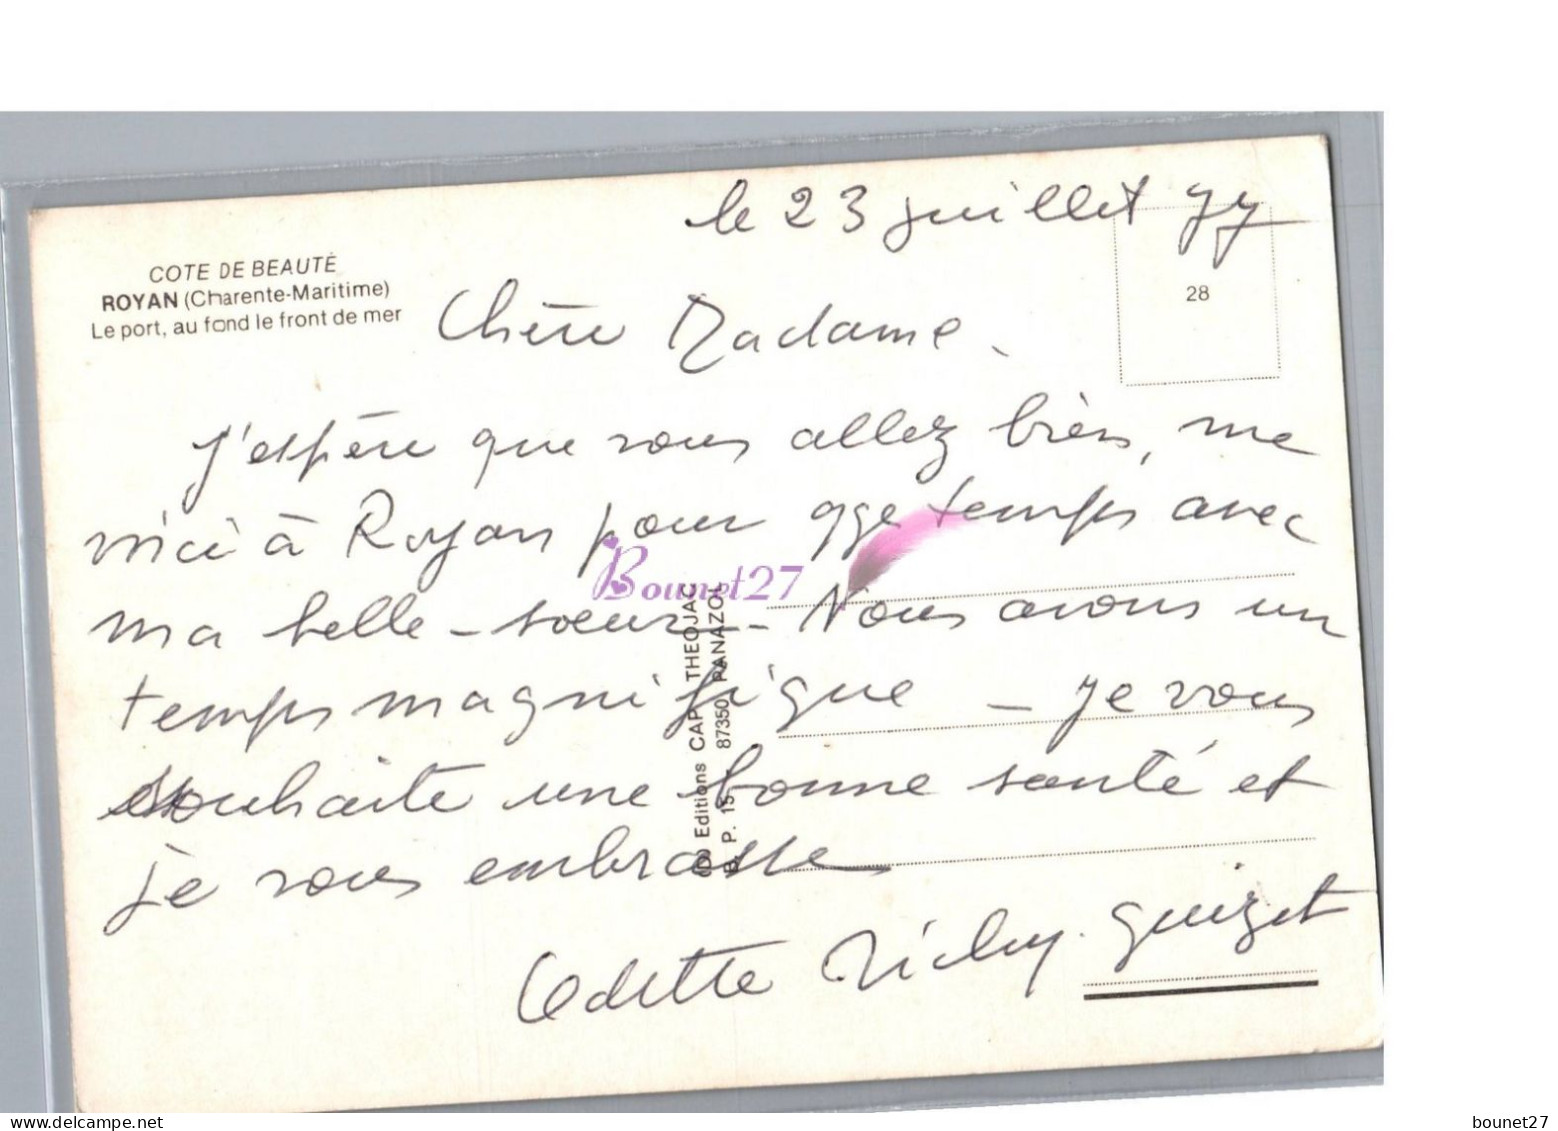 le 23 juillet 77
COTE DE BEAUTÉ
ROYAN (Charente-Maritime)
Le port, au fond le front de mer
28
Chère Madame.
J'espère que vous allez bien, me
voici à Royan pour qqe temps avec
ma belle-soeur - Nous avons un
temps magnifique - je vous
souhaite une bonne santé et
je vous embrasse
Odette
Editions CAP-THEOJAC
B. P. 15 - 87350 PANAZOL
Bounet27
delcampe.net
bounet27